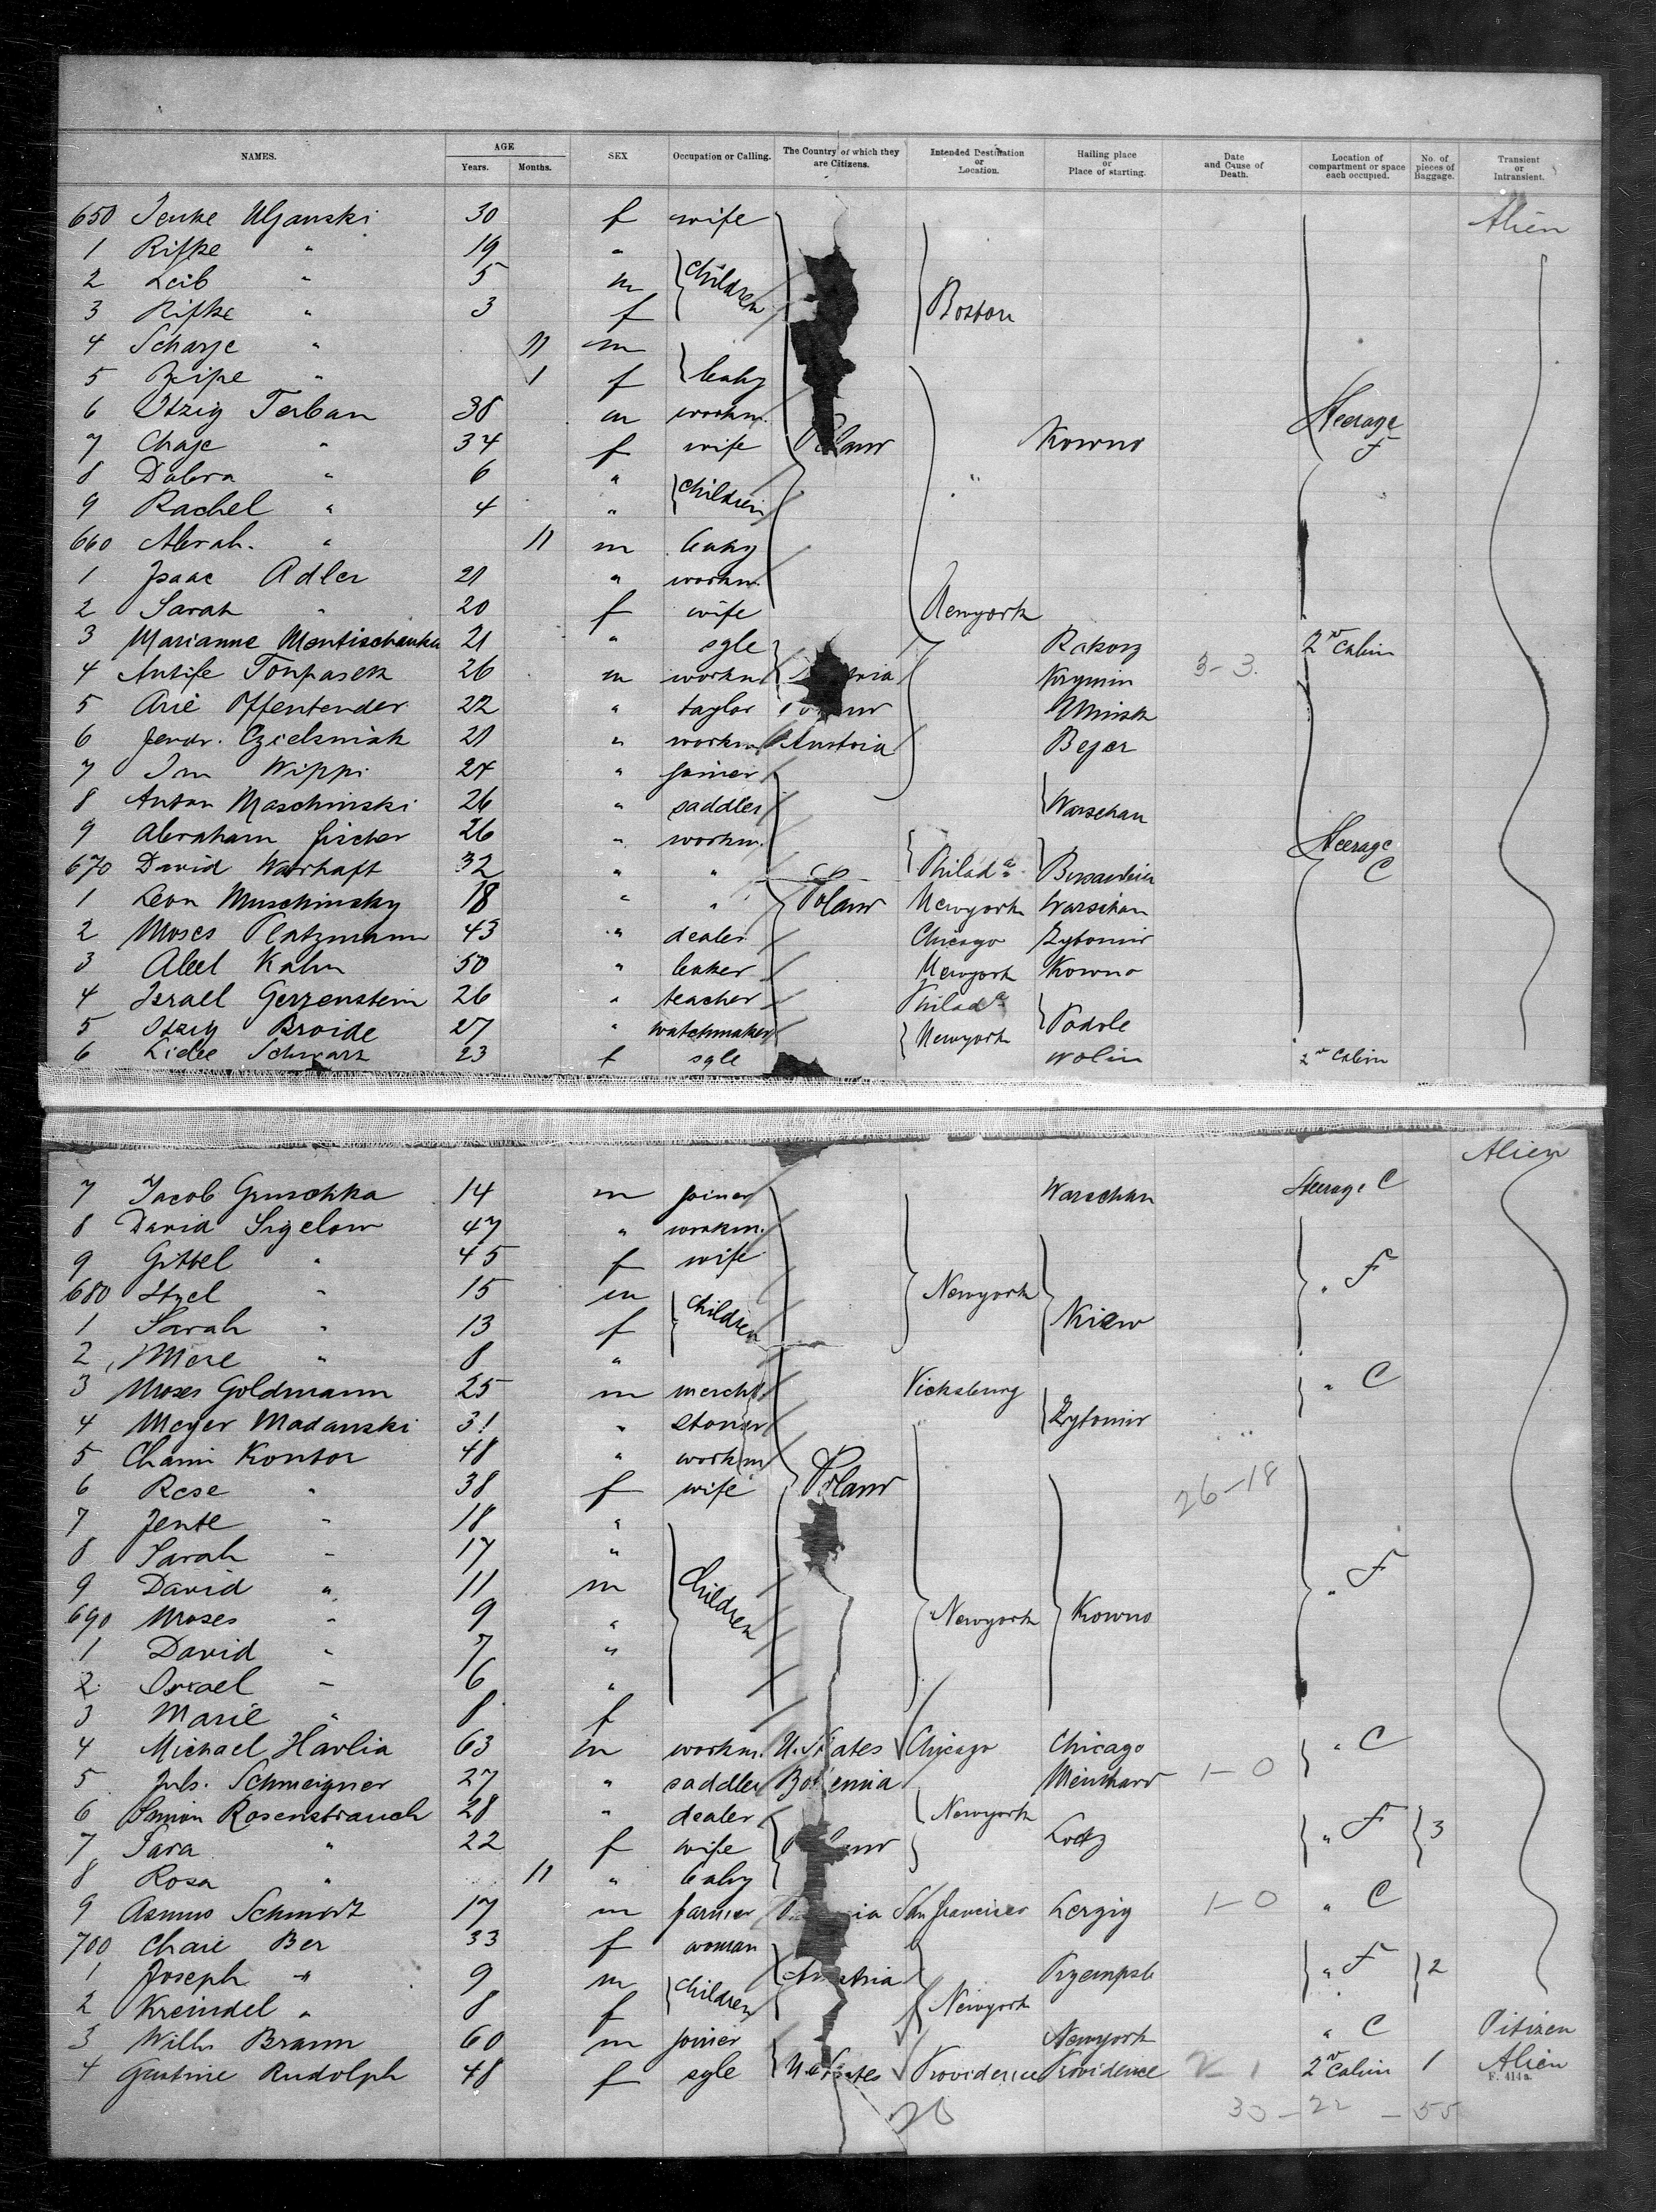 NAMES. AGE Years. Months. SEX Occupation or Calling. The Country of which they are Citizens. Intended Destination or Location. Hailing place or Place of starting. Date and Cause of Death. Location of compartment or space each occupied. No. of pieces of Baggage. Transient or Intransient.
650 Jenke 30 f wife Alien
1 Rifke " 19 "
2 Leib " 5 m children
3 Rifke " 3 f Boston
4 Scharje " 11 m
5 " 1 f baby
6 Itzig Terban 38 m workm. Steerage
7 Chaje " 34 f wife Kowno F
8 Dobra " 6 " children "
9 Rachel " 4 "
660 Abrah. " 11 m baby
1 Isaac Adler 21 " workm.
2 Sarah " 20 f wife Newyork
3 Marianne 21 " sgle 2nd Cabin
4 26 m workm 3-3.
5 Arie Offentender 22 " taylor Minsk
6 21 " workm. Austria
7 Wippi 24 " joiner
8 Anton Maschinski 26 " saddler Warschau
9 Abraham Fischer 26 " workm. Steerage
670 David Warhaft 32 " " Philada. C
1 Leon Muschinsky 18 " " Poland Newyork Warschau
2 Moses Platzmann 43 " dealer Chicago Zytomir
3 Abel Kahn 50 " baker Newyork Kowno
4 Israel Gerzenstein 26 " teacher Philada
5 Itzig Broide 27 " watchmaker Newyork Podole
6 Schwarz 23 f sgle Wolin 2nd Cabin
Alien
7 Jacob Gruschka 14 m joiner Warschau Steerage C
8 David Sigelow 47 " workm.
9 Gittel " 45 f wife
680 Itzel " 15 m children Newyork " F
1 Sarah " 13 f Kiew
2 Mere " 8 "
3 Moses Goldmann 25 m mercht. Vicksburg " C
4 Meyer Madanski 31 " Zytomir
5 Chaim Kontor 48 " workm
6 Rese " 38 f wife Poland 26-18
7 Jente " 18 "
8 Sarah " 17 "
9 David " 11 m children " F
690 Moses " 9 " Newyork Kowno
1 David " 7 "
2 Israel " 6 "
3 Marie " 8 f
4 Michael Havlia 63 m workm. U. States Chicago Chicago " C
5 Juls. Schmeigner 27 " saddler Bohemia 1-0
6 Simon Rosenstrauch 28 " dealer Newyork
7 Sara " 22 f wife Lodz " F 3
8 Rosa " 11 " baby
9 17 m farmer San Francisco 1-0 " C
700 Chaie Ber 33 f woman
1 Joseph " 9 m children Austria " F 2
2 Kreindel " 8 f Newyork
3 Wilh. Braun 60 m joiner Newyork " C Citizen
4 Rudolph 48 f sgle U. States Providence Providence 2-1 2nd Cabin 1 Alien
F. 414a.
33-22-55